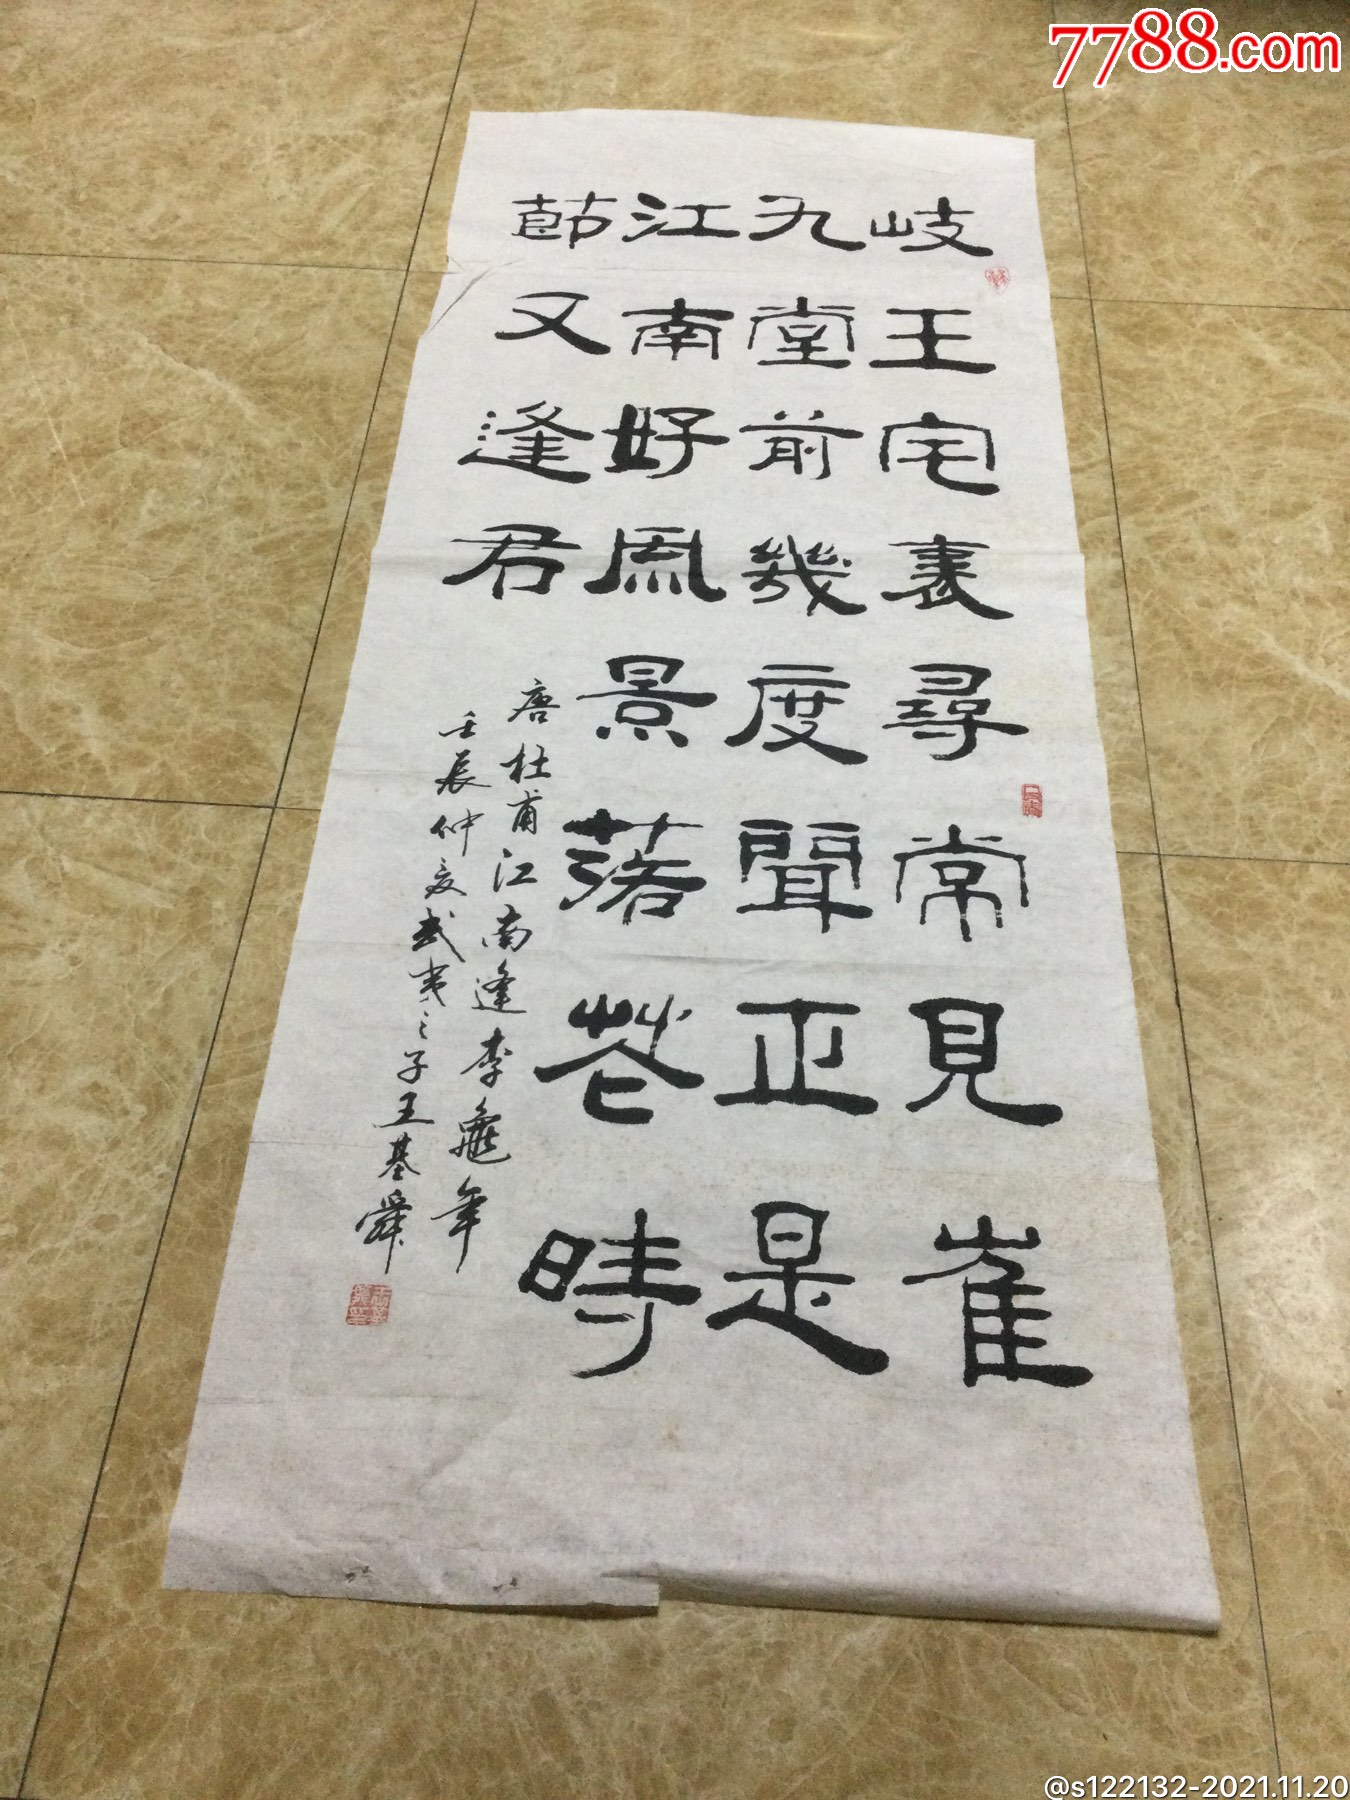 7788.com
岐王宅裏尋常見崔
九堂前幾度聞正是
江南好風景落花時
節又逢君
唐杜甫江南逢李龜年
壬辰仲夏武夷之子王基舜
@s122132-2021.11.20